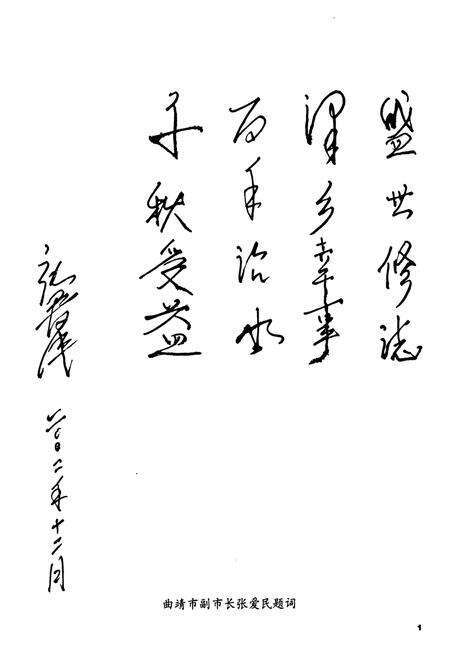 盛世修誌
泽乡幸事
百年治水
千秋受益
张爱民
二〇〇二年十二月
曲靖市副市长张爱民题词
1